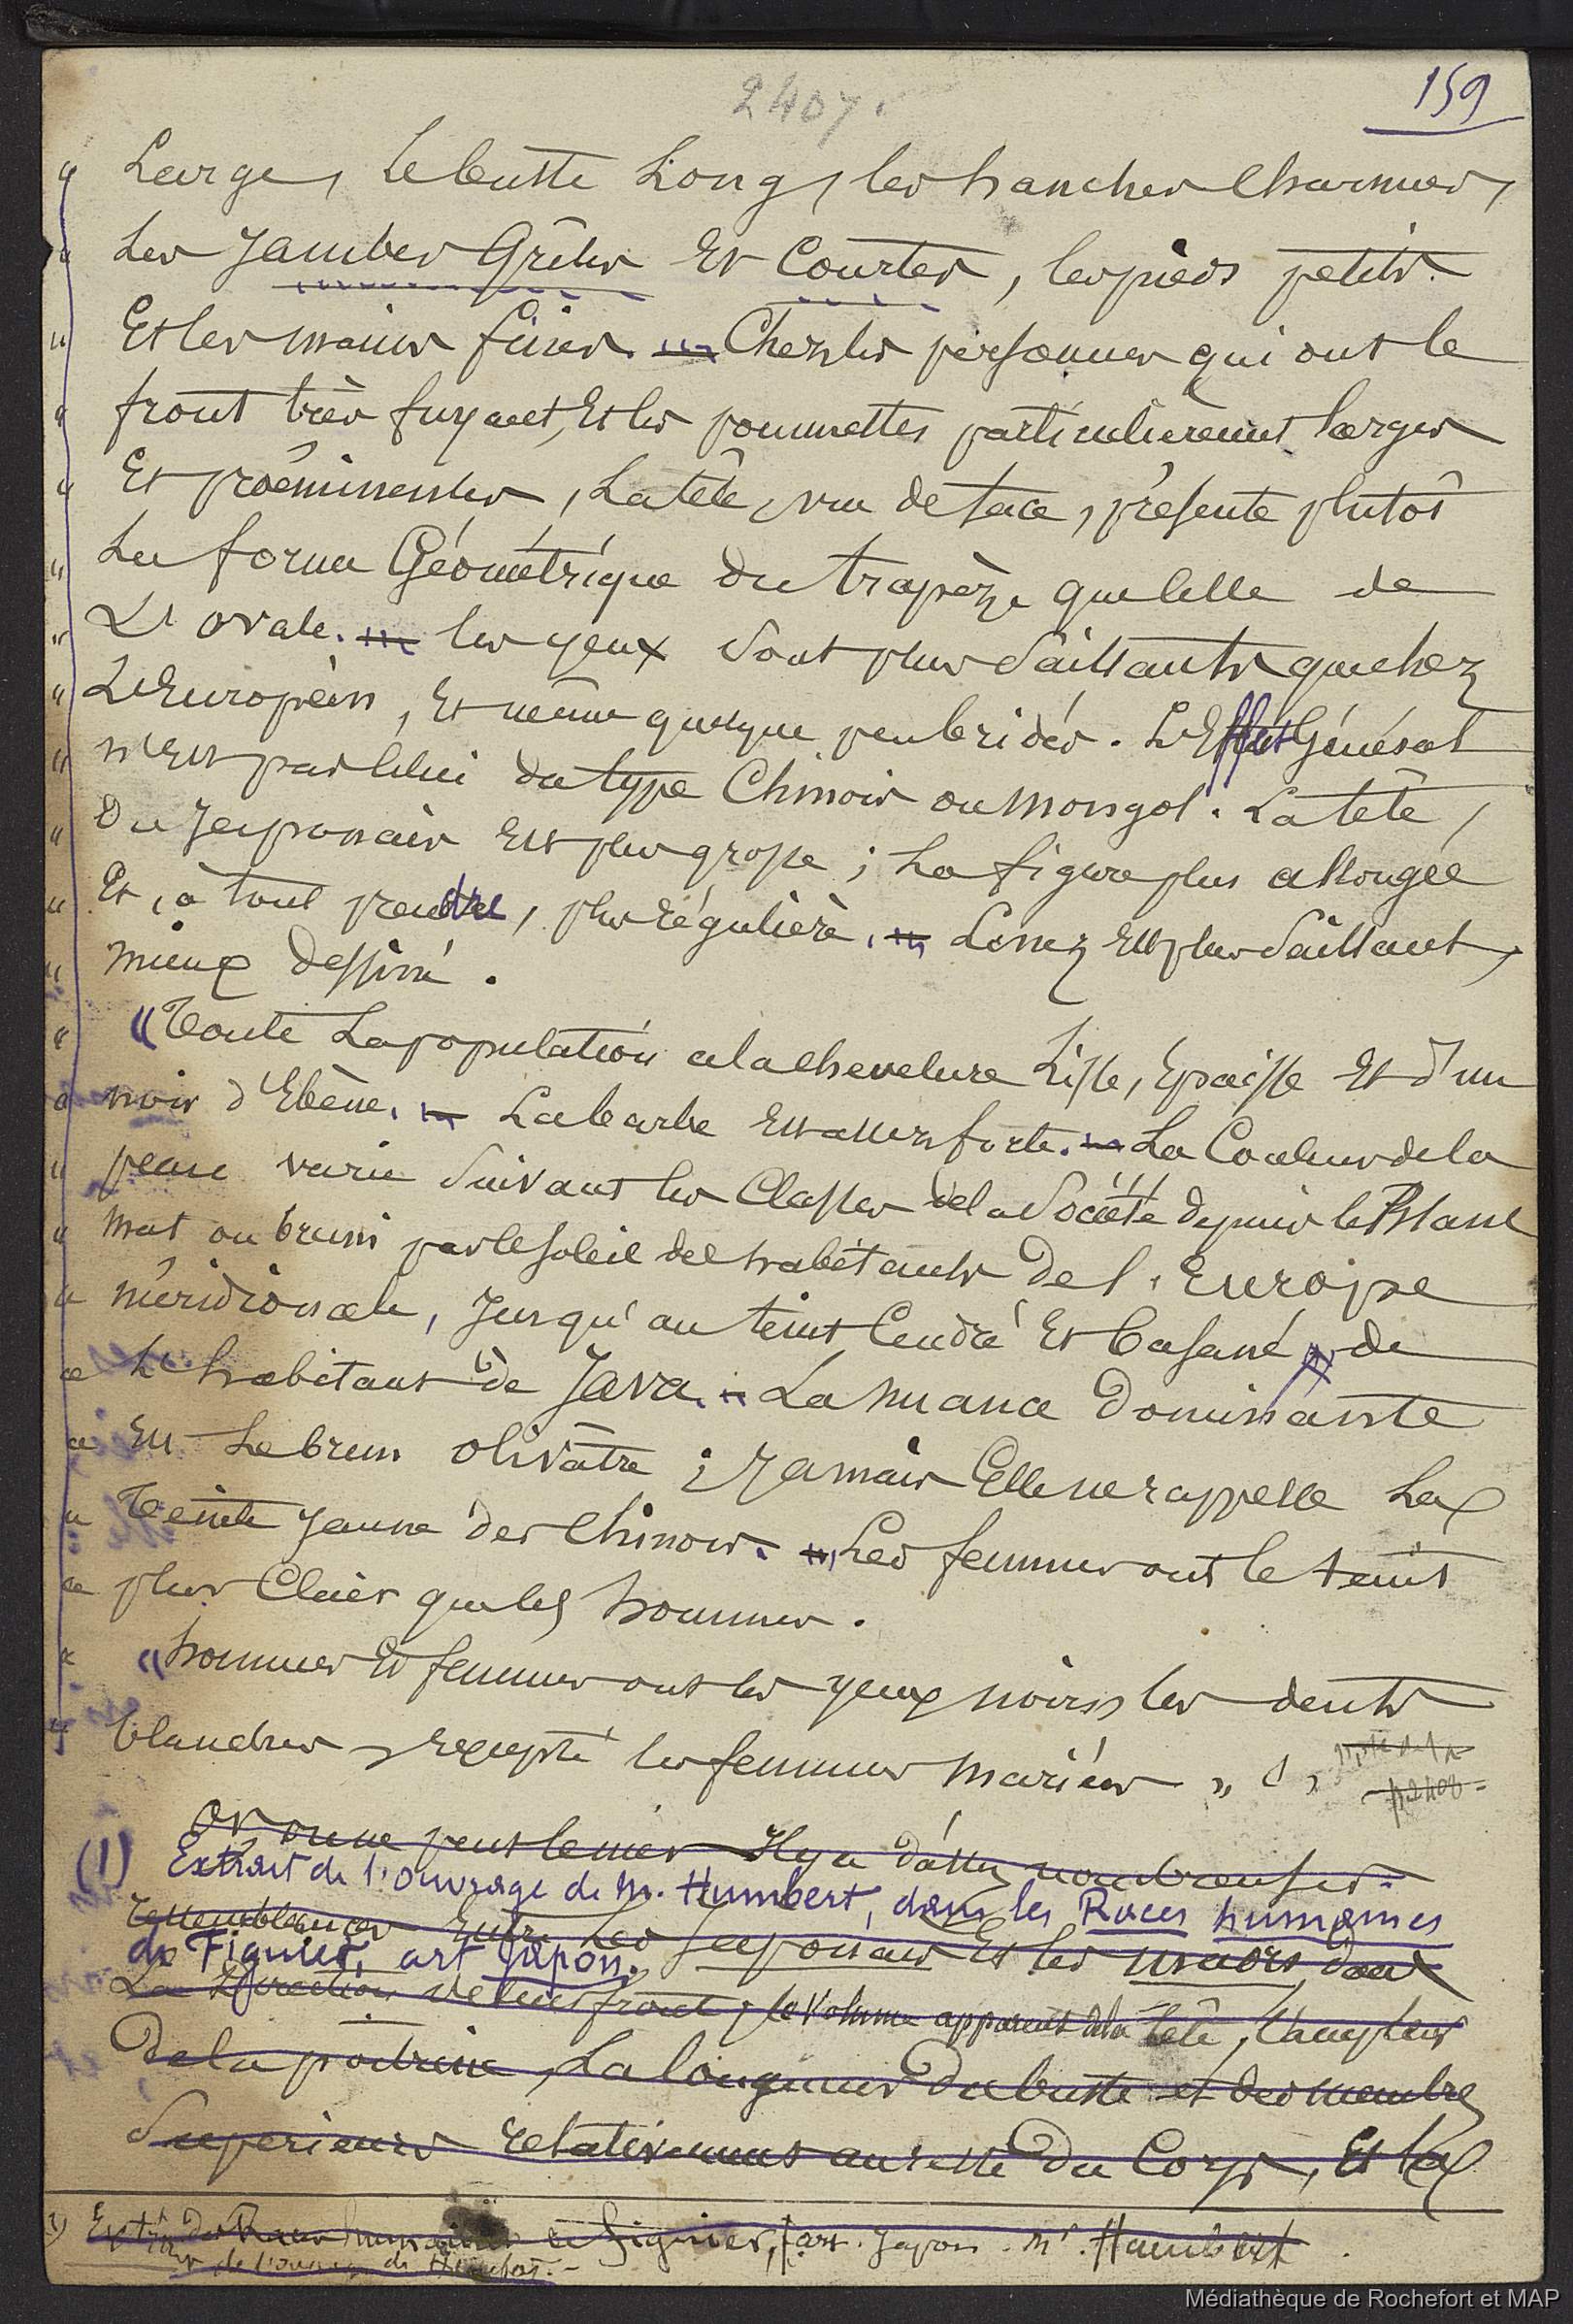 2407.
159
" Large, le buste Long, les hanches Charnues,
" Les Jambes Grêles Et Courtes, les pieds petits.
" Et les mains fines. — Chez les personnes qui ont le
" front très fuyant, Et les pommettes particulièrement larges
" Et proéminentes, La tête, vue de face, présente plutôt
" La forme Géométrique du trapèze que celle de
" L'ovale. — les yeux Sont plus Saillants que chez
" L'Européen, Et même quelque peu bridés. L'Effet Général
" n'Est pas Celui du type Chinois ou Mongol. La tête,
" Du Japonais Est plus grosse ; La figure plus allongée
" Et, à tout prendre, plus régulière. — Le nez Est plus Saillant,
" mieux dessiné.
" "Toute La population a la chevelure Lisse, Epaisse Et d'un
" noir d'Ebène. — La barbe Est assez forte. — La Couleur de la
" peau varie Suivant les Classes de la Société depuis le Blanc
" mat ou bruni par le soleil des habitants De l'Europe
" méridionale, Jusqu'au teint Cendré Et basané de
" L'habitant de Java. — La nuance Dominante
" Est Le brun olivâtre ; Jamais Elle ne rappelle La
" Teinte Jaune des Chinois. — Les femmes ont le teint
" plus Clair que les hommes.
" "hommes Et femmes ont les yeux noirs, les dents
" blanches, Excepté les femmes Mariées "
p 2408
Or on ne peut le nier Il y a d'assez nombreuses
(1) Extrait de l'ouvrage de M. Humbert, dans les Races humaines
ressemblances Entre Les Japonais Et les maors dont
de Figuier, art Japon.
La direction de leur front, le Volume apparent de la tête, l'ampleur
De la poitrine, La longueur Du buste et des membres
Supérieurs relativement au reste Du Corps, Et La
1) Ext des Races humaines de Figuier, art. Japon. Mr. Humbert.
de l'ouvrage de Humbert. -
Médiathèque de Rochefort et MAP